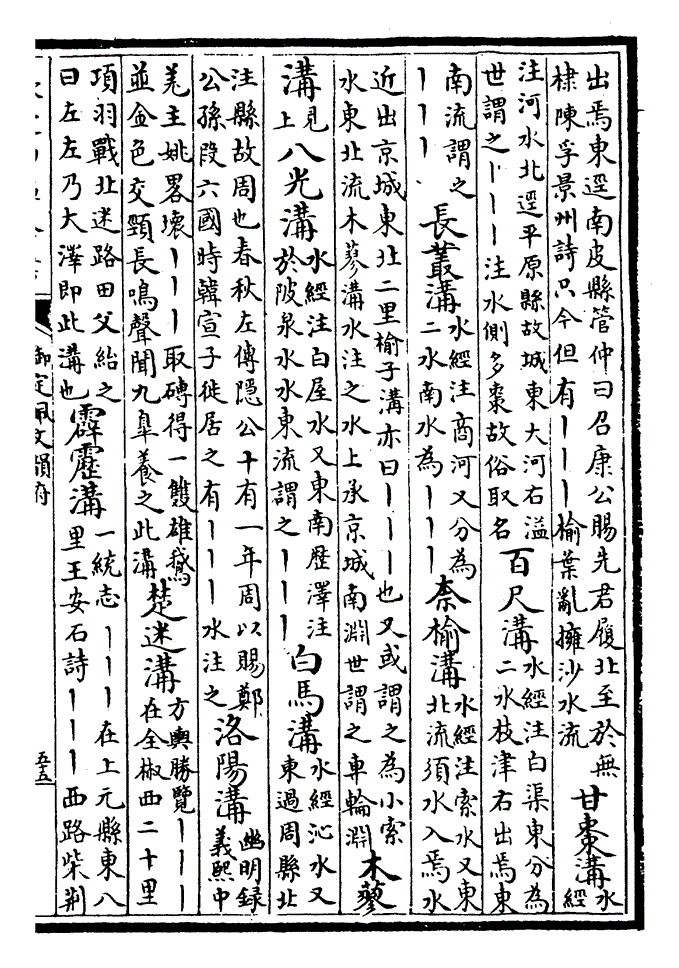 出焉東逕南皮縣管仲曰召康公賜先君履北至於無
棣陳孚景州詩只今但有丨丨丨榆葉亂擁沙水流
甘棗溝
水
經
注河水北逕平原縣故城東大河右溢
世謂之丨丨丨注水側多棗故俗取名
百尺溝
水經注白渠東分為
二水枝津右出焉東
南流謂之
丨丨丨
長叢溝
水經注商河又分為
二水南水為丨丨丨
柰榆溝
水經注索水又東
北流須水入焉水
近出京城東北二里榆子溝亦曰丨丨丨也又或謂之為小索
水東北流木蓼溝水注之水上承京城南淵世謂之車輪淵
木蓼
溝
見
上
八光溝
水經注白屋水又東南歷澤注
於陂泉水水東流謂之丨丨丨
白馬溝
水經沁水又
東過周縣北
注縣故周也春秋左傳隱公十有一年周以賜鄭
公孫段六國時韓宣子徙居之有丨丨丨水注之
洛陽溝
幽明録
義熙中
羌主姚畧壞丨丨丨取磚得一雙雄鵝
並金色交頸長鳴聲聞九臯養之此溝
楚迷溝
方輿勝覽丨丨丨
在全椒西二十里
項羽戰北迷路田父紿之
曰左左乃大澤即此溝也
霹靂溝
一統志丨丨丨在上元縣東八
里王安石詩丨丨丨西路柴荆
御定佩文韻府
五五